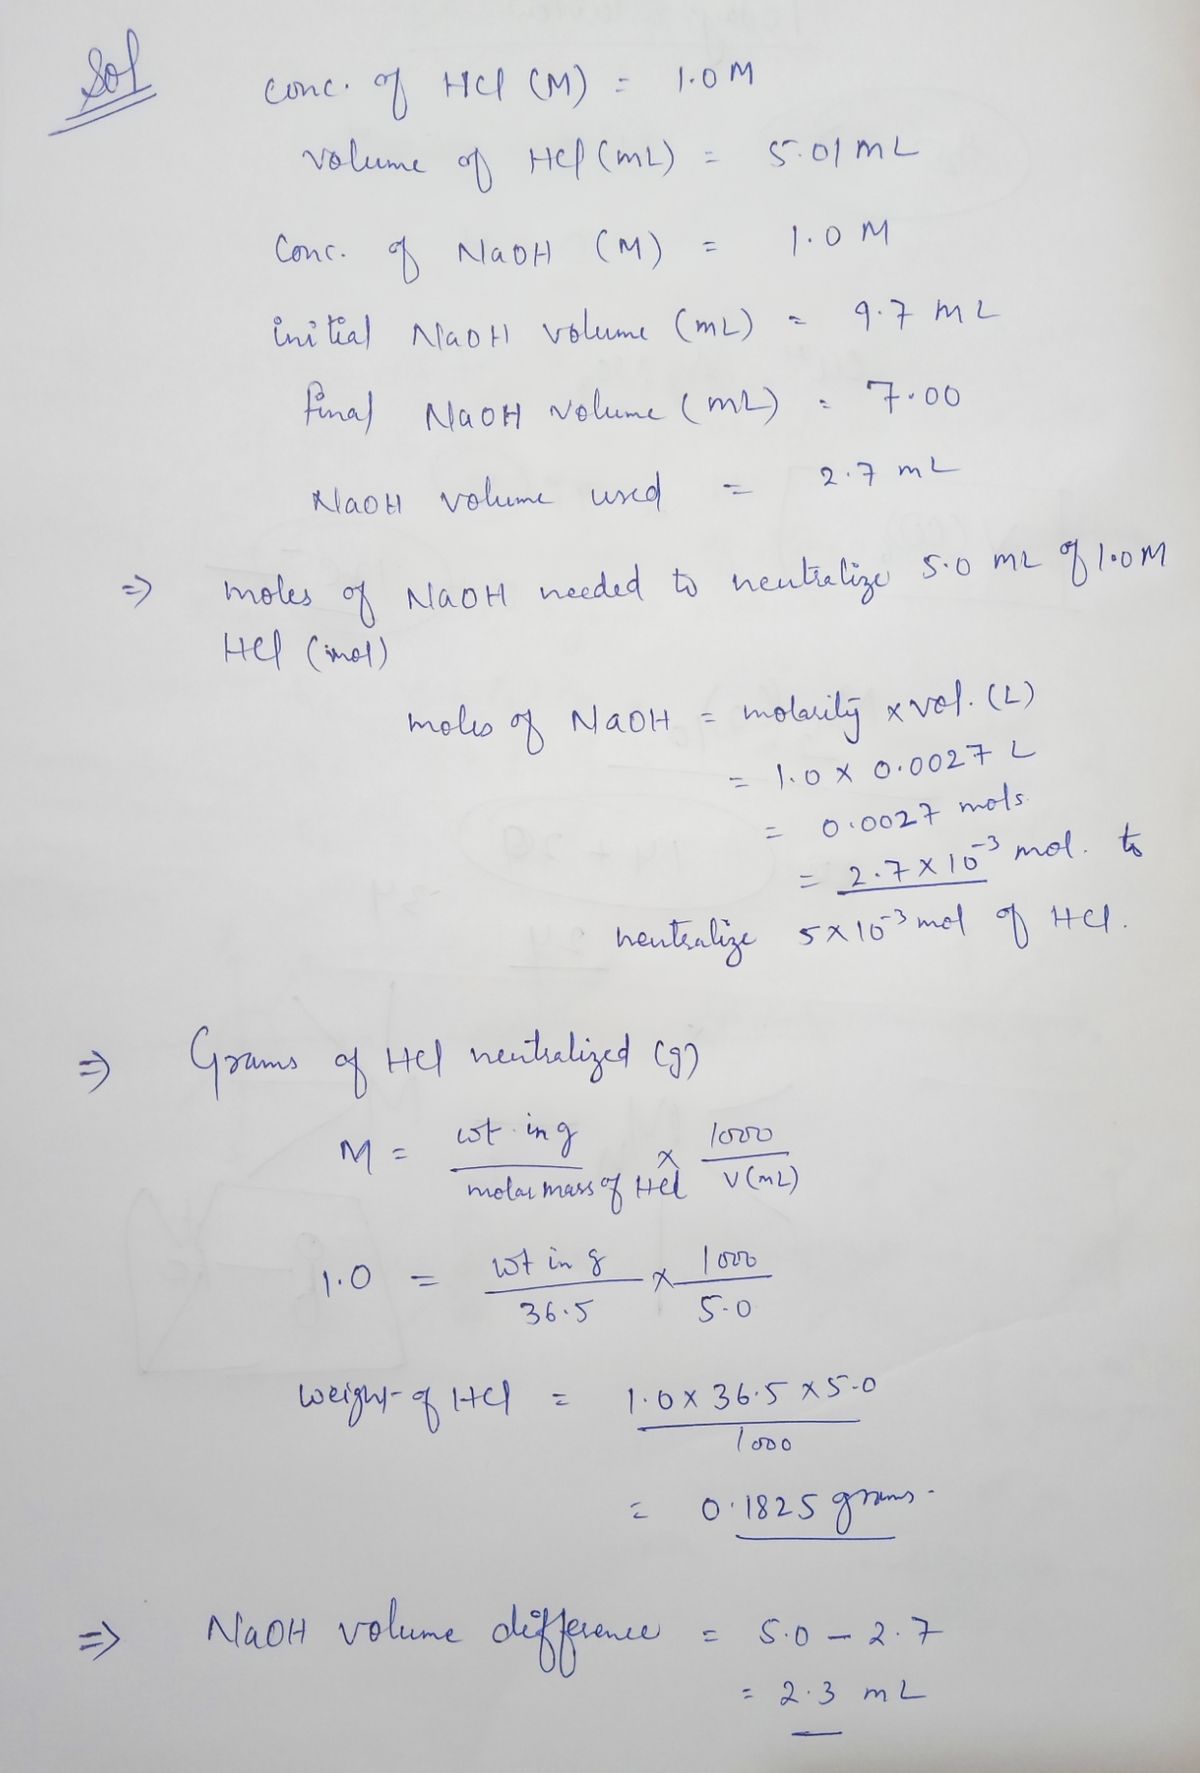 Sol
Conc. of HCl (M) = 1.0 M
volume of HCl (mL) = 5.01 mL
Conc. of NaOH (M) = 1.0 M
initial NaOH volume (mL) = 9.7 mL
final NaOH volume (mL) = 7.00
NaOH volume used = 2.7 mL
=> moles of NaOH needed to neutralize 5.0 mL of 1.0 M
HCl (mol)
moles of NaOH = molarity x vol. (L)
= 1.0 x 0.0027 L
= 0.0027 mols.
= 2.7 x 10⁻³ mol. to
neutralize 5x10⁻³ mol of HCl.
=> Grams of HCl neutralized (g)
M = wt. in g / molar mass of HCl x 1000 / V(mL)
1.0 = wt in g / 36.5 x 1000 / 5.0
weight of HCl = 1.0 x 36.5 x 5.0 / 1000
= 0.1825 grams.
=> NaOH volume difference = 5.0 - 2.7
= 2.3 mL